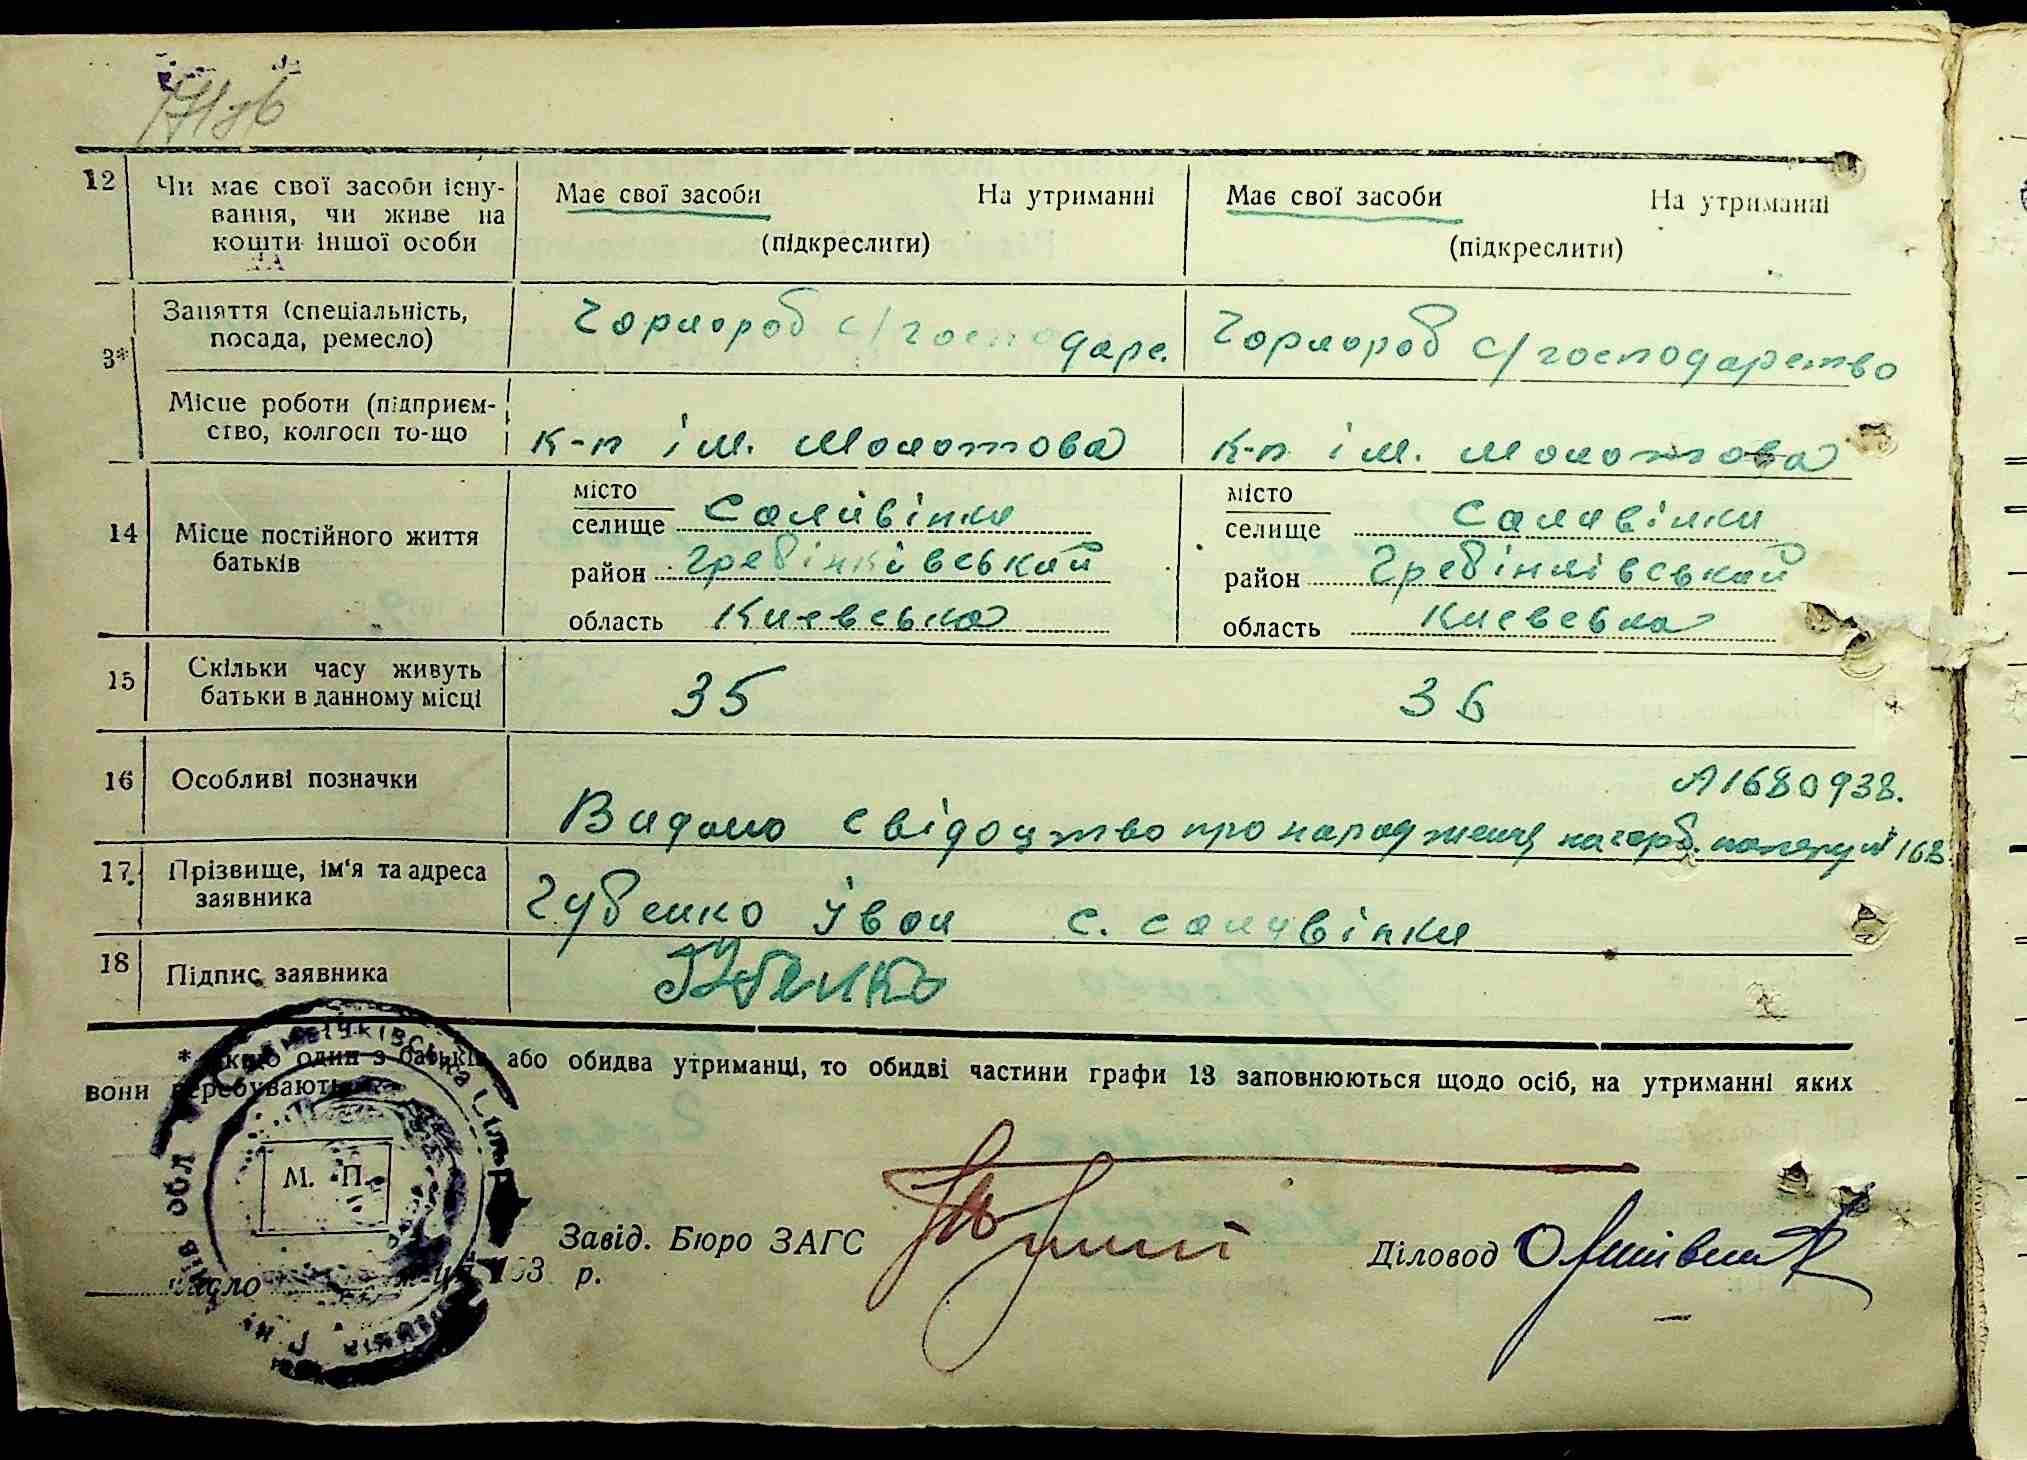 12 Чи має свої засоби існу-
вання, чи живе на
кошти іншої особи
Має свої засоби На утриманні
(підкреслити)
Має свої засоби На утриманні
(підкреслити)
3*
Заняття (спеціальність,
посада, ремесло)
Чорнороб с/господарс.
Чорнороб с/господарство
Місце роботи (підприєм-
ство, колгосп то-що
к-п ім. Молотова
к-п ім. Молотова
14 Місце постійного життя
батьків
місто
селище Саливінки
район Гребінківський
область Киевська
місто
селище Саливінки
район Гребінківський
область Киевська
15 Скільки часу живуть
батьки в данному місці
35
36
16 Особливі позначки
А1680938.
Видано свідоцтво про народження на герб. папері № 168
17. Прізвище, ім'я та адреса
заявника
Губенко Іван с. Саливінки
18 Підпис заявника
Губенко
* Якщо один з батьків або обидва утриманці, то обидві частини графи 13 заповнюються щодо осіб, на утриманні яких
вони перебувають
М. П.
Завід. Бюро ЗАГС
Діловод
число 193 р.